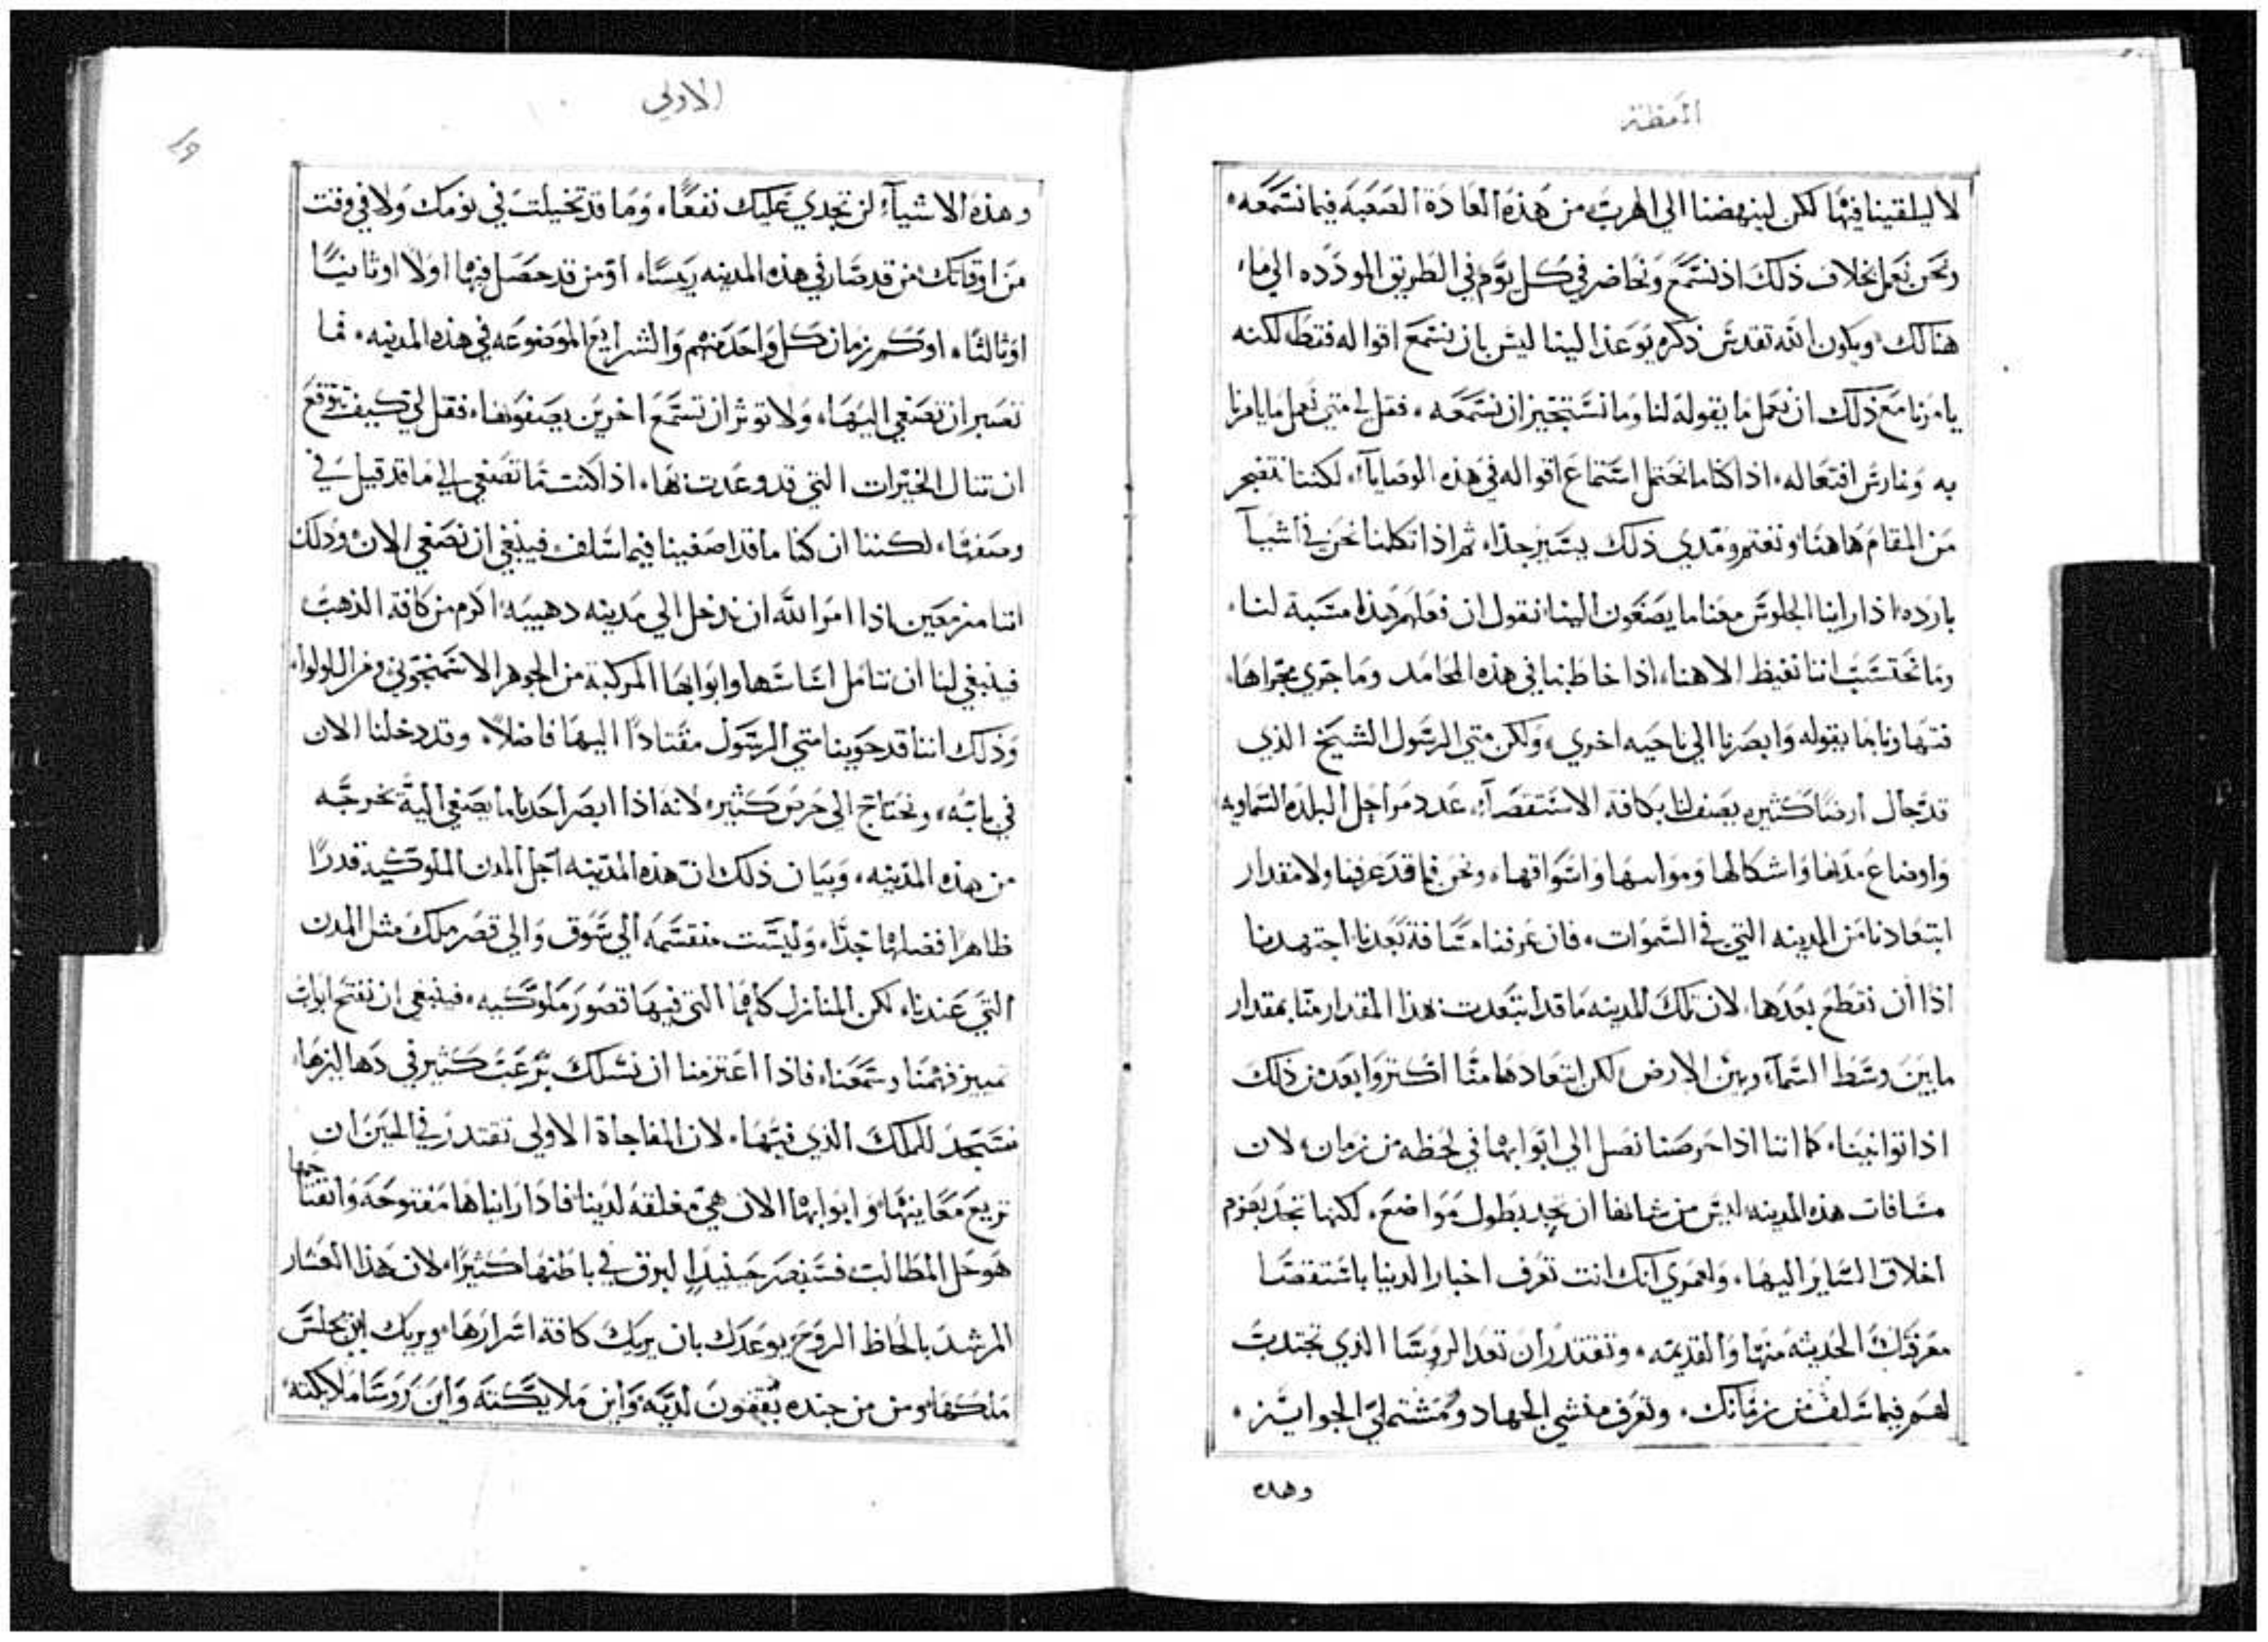 العظة
لا ليلقينا فيها لكن لينهضنا الي الهرب من هذه العادة الصعبة فيما نسمعه
ونحن نعمل بخلاف ذلك اذ نسمع ونحاضر في كل يوم في الطريق المودده الي ما
هنالك ويكون الله تقدس ذكره يوعذ الينا ليس بان نسمع اقواله فقط لكنه
يامرنا مع ذلك ان نعمل ما يقوله لنا وما نستجيز ان نسمعه فقل لي متي نعمل ما يامرنا
به ونمارس افتعاله اذا كنا ما نحتمل استماع اقواله في هذه الوصايا لكننا نتضجر
من المقام هاهنا ونغتم ومدي ذلك يسير جدا ثم اذا تكلمنا نحن في اشيآ
بارده اذا راينا الجلوس معنا ما يصغون الينا نقول ان فعلهم هذا مسبة لنا
وما نحتسب اننا نغيظ الاهنا اذا خاطبنا في هذه المحامد وما جري مجراها
فتهاونا بما يقوله وابصرنا الي ناحيه اخري ولكن متي الرسول الشيخ الذي
قد جال ارضا كثيره يصف لنا بكافة الاستقصآ عدد مراحل البلده السماويه
واوضاع مدنها واشكالها وموانيها واسواقها ونحن فما قد عرفنا ولا مقدار
ابتعادنا من المدينه التي في السموات فان عرفنا مسافة بعدنا اجتهدنا
اذا ان نقطع بعدها لان تلك المدينه ما قد ابتعدت هذا المقدار منا بمقدار
ما بين وسط السمآ وبين الارض لكن ابتعادها منا اكثر وابعد من ذلك
اذا توانينا كما اننا اذا حرصنا نصل الي ابوابها في لحظه من زمان لان
مسافات هذه المدينه ليس من شانها ان تحد بطول مواضع لكنها تحد بعزم
اخلاق الساير اليها ولعمري انك انت تعرف اخبار الدنيا باستقصا
معرفتك الحديثه منها والقديمه وتقتدر ان تعد الروسا الذي تجندت
لهم فيما سلف من زمانك وتعرف منشي الجهاد ومشتملي الجوايز
وهذه
الاولي
وهذه الاشيآ لن تجدي عليك نفعا وما قد تخيلت في نومك ولا في وقت
من اوقاتك من قد صار في هذه المدينه ريسا او من قد حصل فيها اولا او ثانيا
او ثالثا او كم زمان كل واحد منهم والشرايع الموضوعه في هذه المدينه فما
تصبر ان تصغي اليها ولا توثر ان تسمع اخرين يصفونها فقل لي كيف تتوقع
ان تنال الخيرات التي قد وعدت بها اذا كنت ما تصغي الي ما قد قيل في
وصفها لكننا ان كنا ما قد اصغينا فيما سلف فينبغي ان نصغي الان وذلك
اننا مزمعين اذا امر الله ان ندخل الي مدينه ذهبيه اكرم من كافة الذهب
فينبغي لنا ان نتامل اساسها وابوابها المركبة من الجوهر الاسمنجوني ومن اللولوا
وذلك اننا قد حوينا متي الرسول مقتادا اليها فاضلا وقد دخلنا الان
في بابه ونحتاج الي حرص كثير لانه اذا ابصر احدنا ما يصغي اليه يخرجه
من هذه المدينه وبيان ذلك ان هذه المدينه اجل المدن الملوكيه قدرا
ظاهرا فضلها جدا وليست منقسمه الي سوق والي قصر ملك مثل المدن
التي عندنا لكن المنازل كلها التي فيها قصور ملوكيه فينبغي ان نفتح ابواب
تمييز فهمنا وسمعنا فاذا اعتزمنا ان نسلك برعب كثير في دهاليزها
فنسجد للملك الذي فيها لان المفاجاة الاولي تقتدر في الحين ان
تريع معاينها وابوابها الان هي مغلقه لدينا فاذا رايناها مفتوحه وانفتاحها
هو حل المطالب فسنبصر حينيذ البرق في باطنها كثيرا لان هذا العشار
المرشد بالحاظ الروح يوعدك بان يريك كافة اسرارها ويريك اين يجلس
ملكها ومن من جنده يقفون لديه واين ملايكته واين روسا ملايكته